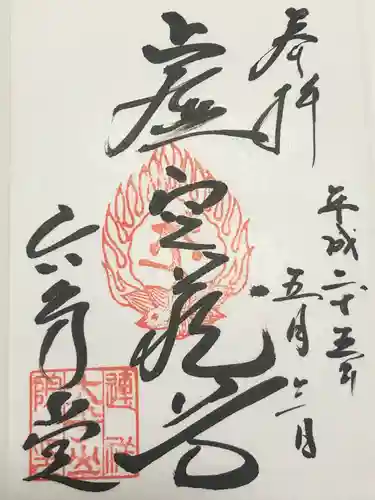 奉拝
平成二十五年
五月六日
虚空蔵尊
六角堂